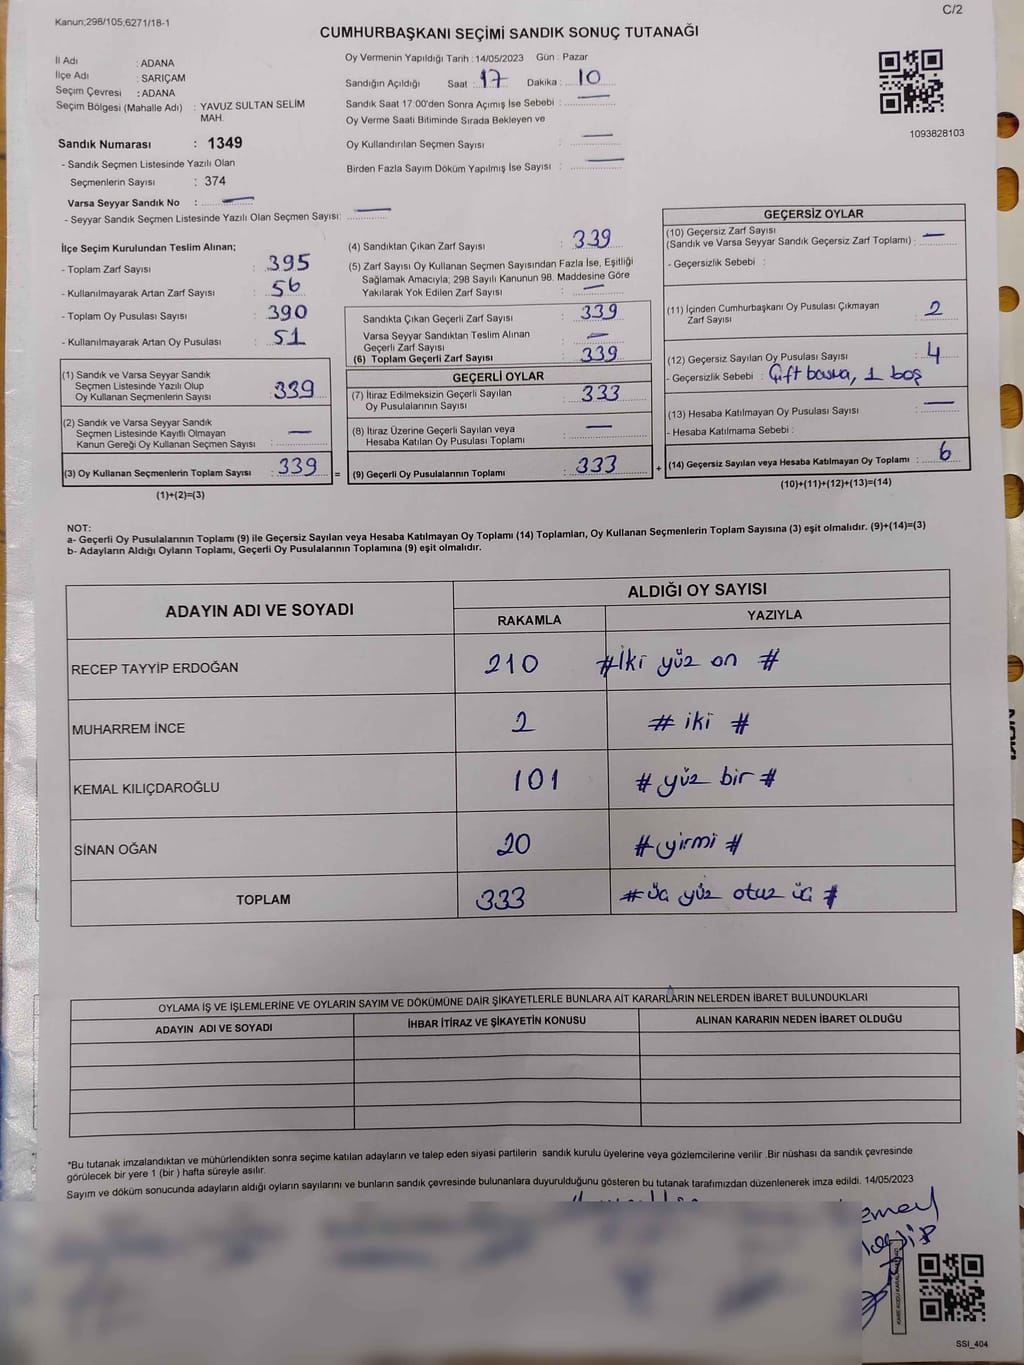 Kanun;298/105;6271/18-1
C/2
CUMHURBAŞKANI SEÇİMİ SANDIK SONUÇ TUTANAĞI
İl Adı : ADANA
İlçe Adı : SARIÇAM
Seçim Çevresi : ADANA
Seçim Bölgesi (Mahalle Adı) : YAVUZ SULTAN SELİM
MAH.
Sandık Numarası : 1349
- Sandık Seçmen Listesinde Yazılı Olan
Seçmenlerin Sayısı : 374
Varsa Seyyar Sandık No : —
- Seyyar Sandık Seçmen Listesinde Yazılı Olan Seçmen Sayısı: —
Oy Vermenin Yapıldığı Tarih : 14/05/2023 Gün : Pazar
Sandığın Açıldığı Saat : 17 Dakika : 10
Sandık Saat 17:00'den Sonra Açımış İse Sebebi : —
Oy Verme Saati Bitiminde Sırada Bekleyen ve
Oy Kullandırılan Seçmen Sayısı : —
Birden Fazla Sayım Döküm Yapılmış İse Sayısı : —
1093828103
İlçe Seçim Kurulundan Teslim Alınan;
- Toplam Zarf Sayısı : 395
- Kullanılmayarak Artan Zarf Sayısı : 56
- Toplam Oy Pusulası Sayısı : 390
- Kullanılmayarak Artan Oy Pusulası : 51
(1) Sandık ve Varsa Seyyar Sandık
Seçmen Listesinde Yazılı Olup
Oy Kullanan Seçmenlerin Sayısı : 339
(2) Sandık ve Varsa Seyyar Sandık
Seçmen Listesinde Kayıtlı Olmayan
Kanun Gereği Oy Kullanan Seçmen Sayısı : —
(3) Oy Kullanan Seçmenlerin Toplam Sayısı : 339 =
(1)+(2)=(3)
(4) Sandıktan Çıkan Zarf Sayısı : 339
(5) Zarf Sayısı Oy Kullanan Seçmen Sayısından Fazla İse, Eşitliği
Sağlamak Amacıyla; 298 Sayılı Kanunun 98. Maddesine Göre
Yakılarak Yok Edilen Zarf Sayısı : —
Sandıkta Çıkan Geçerli Zarf Sayısı : 339
Varsa Seyyar Sandıktan Teslim Alınan
Geçerli Zarf Sayısı : —
(6) Toplam Geçerli Zarf Sayısı : 339
GEÇERLİ OYLAR
(7) İtiraz Edilmeksizin Geçerli Sayılan
Oy Pusulalarının Sayısı : 333
(8) İtiraz Üzerine Geçerli Sayılan veya
Hesaba Katılan Oy Pusulası Toplamı : —
(9) Geçerli Oy Pusulalarının Toplamı : 333 +
GEÇERSİZ OYLAR
(10) Geçersiz Zarf Sayısı
(Sandık ve Varsa Seyyar Sandık Geçersiz Zarf Toplamı) : —
- Geçersizlik Sebebi :
(11) İçinden Cumhurbaşkanı Oy Pusulası Çıkmayan
Zarf Sayısı : 2
(12) Geçersiz Sayılan Oy Pusulası Sayısı : 4
- Geçersizlik Sebebi : Çift basma, 1 boş
(13) Hesaba Katılmayan Oy Pusulası Sayısı : —
- Hesaba Katılmama Sebebi :
(14) Geçersiz Sayılan veya Hesaba Katılmayan Oy Toplamı : 6
(10)+(11)+(12)+(13)=(14)
NOT:
a- Geçerli Oy Pusulalarının Toplamı (9) ile Geçersiz Sayılan veya Hesaba Katılmayan Oy Toplamı (14) Toplamları, Oy Kullanan Seçmenlerin Toplam Sayısına (3) eşit olmalıdır. (9)+(14)=(3)
b- Adayların Aldığı Oyların Toplamı, Geçerli Oy Pusulalarının Toplamına (9) eşit olmalıdır.
ADAYIN ADI VE SOYADI ALDIĞI OY SAYISI
RAKAMLA YAZIYLA
RECEP TAYYİP ERDOĞAN 210 #İki yüz on #
MUHARREM İNCE 2 # iki #
KEMAL KILIÇDAROĞLU 101 # yüz bir #
SİNAN OĞAN 20 # yirmi #
TOPLAM 333 # üç yüz otuz üç #
OYLAMA İŞ VE İŞLEMLERİNE VE OYLARIN SAYIM VE DÖKÜMÜNE DAİR ŞİKAYETLERLE BUNLARA AİT KARARLARIN NELERDEN İBARET BULUNDUKLARI
ADAYIN ADI VE SOYADI İHBAR İTİRAZ VE ŞİKAYETİN KONUSU ALINAN KARARIN NEDEN İBARET OLDUĞU
*Bu tutanak imzalandıktan ve mühürlendikten sonra seçime katılan adayların ve talep eden siyasi partilerin sandık kurulu üyelerine veya gözlemcilerine verilir .Bir nüshası da sandık çevresinde
görülecek bir yere 1 (bir ) hafta süreyle asılır.
Sayım ve döküm sonucunda adayların aldığı oyların sayılarını ve bunların sandık çevresinde bulunanlara duyurulduğunu gösteren bu tutanak tarafımızdan düzenlenerek imza edildi. 14/05/2023
SSI_404